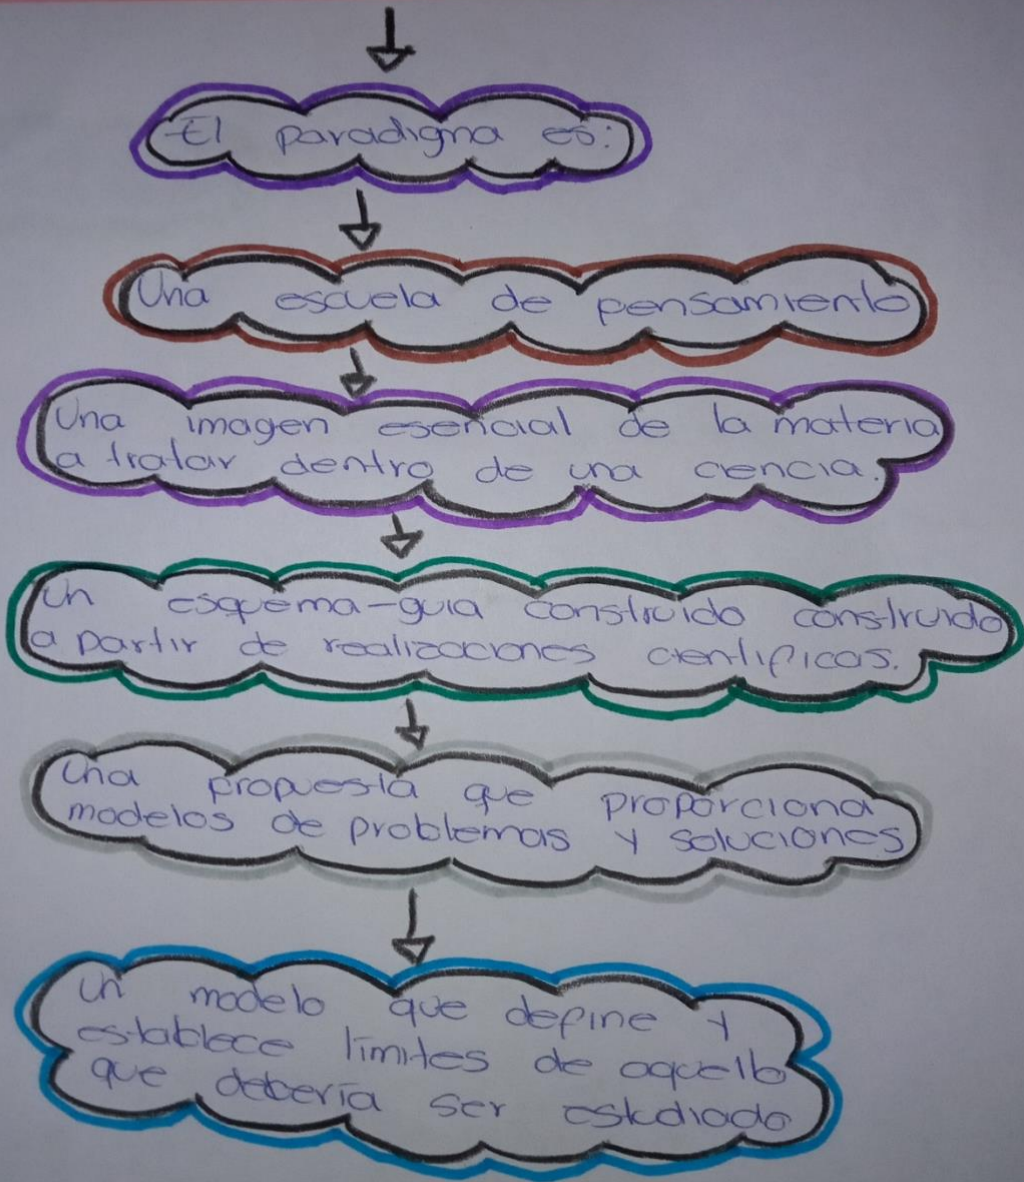 El paradigma es:
Una escuela de pensamiento
Una imagen esencial de la materia
a tratar dentro de una ciencia.
Un esquema-guia construido construido
a partir de realizaciones cientificas.
Una propuesta que proporciona
modelos de problemas y soluciones
Un modelo que define y
establece límites de aquello
que debería ser estudiado